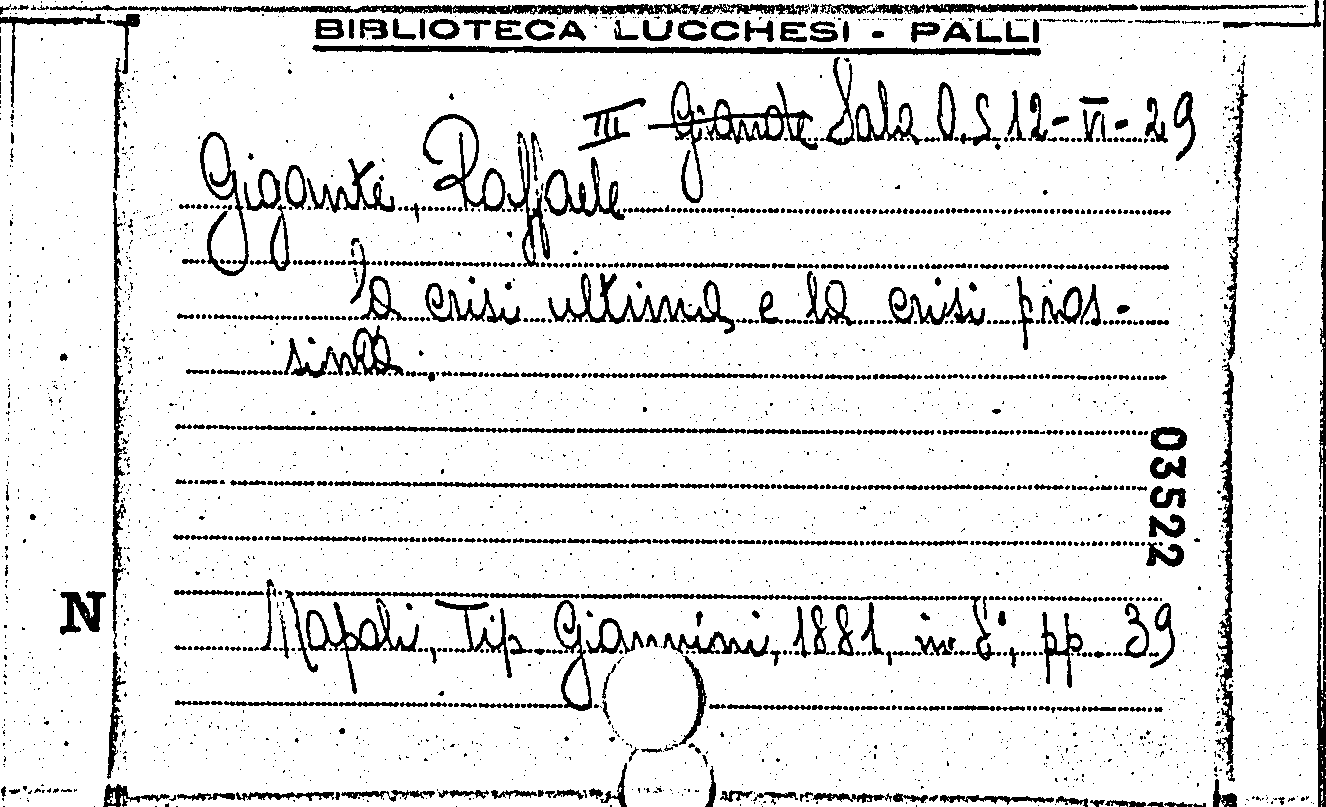 BIBLIOTECA LUCCHESI - PALLI
III Grande Sala O.S. 12-VI-29
Gigante, Raffaele
La crisi ultima, e la crisi pros-
sima.
03522
N
Napoli, Tip. Giannini, 1881, in 8°, pp. 39